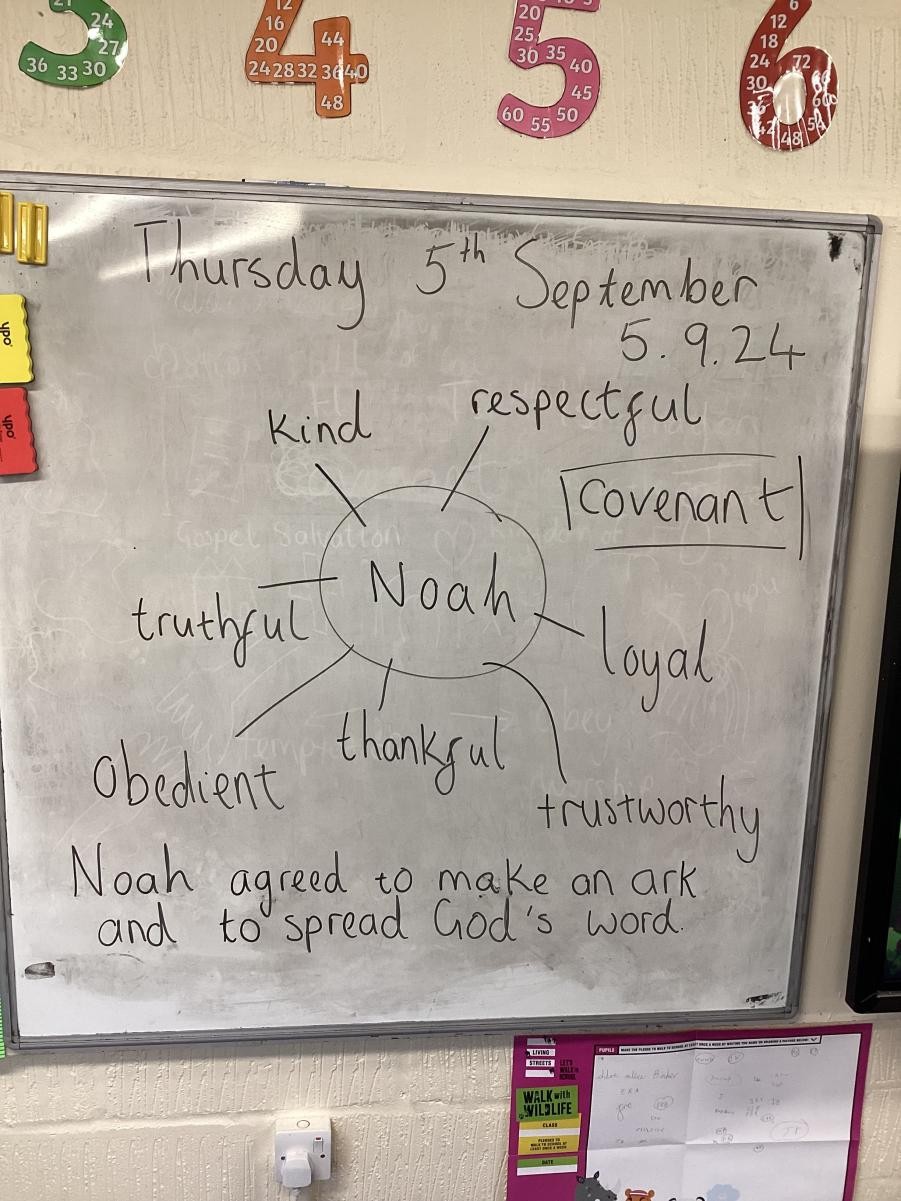 21 24
27
36 33 30
12
16
20 44
24 28 32 36 40
48
20
25
30 35 40
45
60 55 50
6
12
18
24 72
30
60
48 54
Thursday 5th September
5.9.24
kind
respectful
Covenant
Noah
truthful
loyal
thankful
Obedient
trustworthy
Noah agreed to make an ark
and to spread God's word.
Gospel Salvation
LIVING
STREETS
LET'S
WALK TO
SCHOOL
WALK with
WILDLIFE
CLASS
PLEDGES TO
WALK TO SCHOOL AT
LEAST ONCE A WEEK
DATE
PUPILS